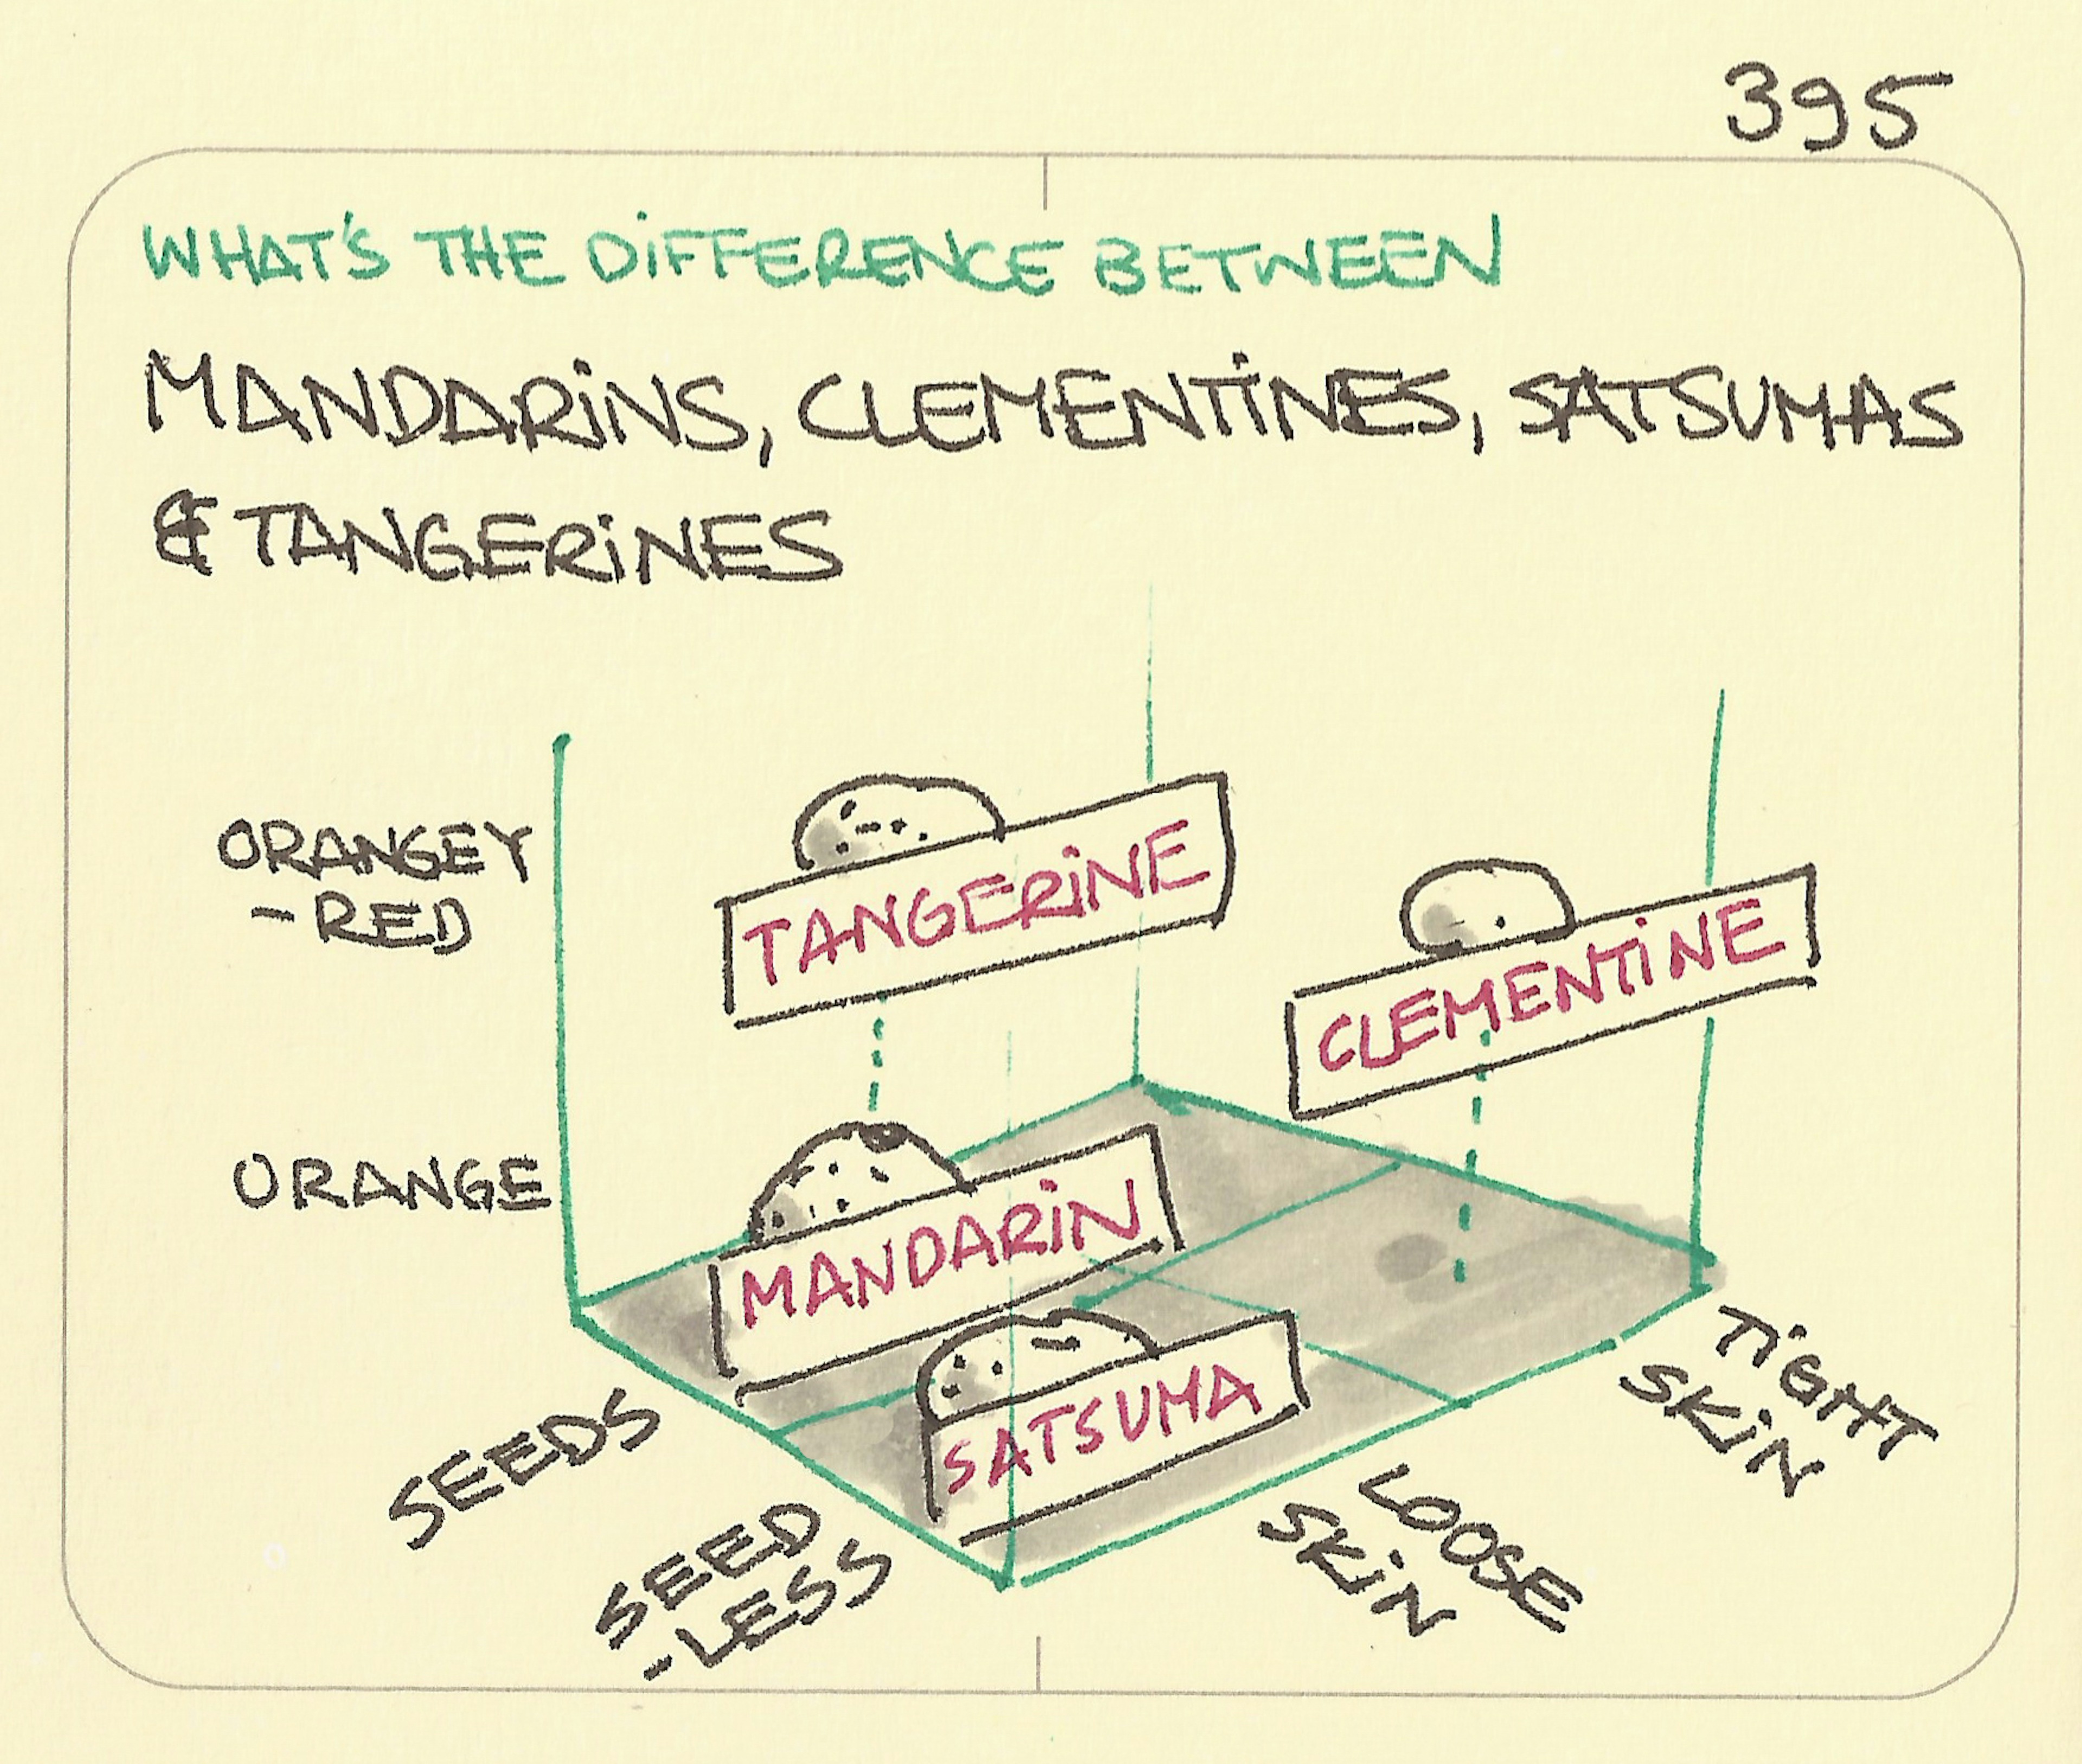 395
WHAT'S THE DIFFERENCE BETWEEN
MANDARINS, CLEMENTINES, SATSUMAS
& TANGERINES
ORANGEY
-RED
TANGERINE
CLEMENTINE
ORANGE
MANDARIN
SATSUMA
SEEDS
SEED
-LESS
LOOSE
SKIN
TIGHT
SKIN